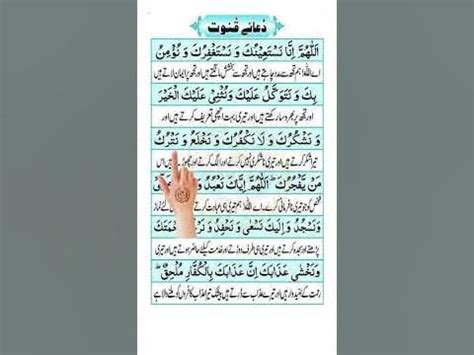 دُعائے قُنوت
اَللّٰهُمَّ اِنَّا نَسْتَعِيْنُكَ وَ نَسْتَغْفِرُكَ وَ نُؤْمِنُ
اے اللہ! ہم تجھ سے مدد چاہتے ہیں اور تجھ سے بخشش مانگتے ہیں اور تجھ پر ایمان لاتے ہیں
بِكَ وَ نَتَوَكَّلُ عَلَيْكَ وَ نُثْنِيْ عَلَيْكَ الْخَيْرَ
اور تجھ پر بھروسہ رکھتے ہیں اور تیری بہت اچھی تعریف کرتے ہیں اور
وَ نَشْكُرُكَ وَ لَا نَكْفُرُكَ وَ نَخْلَعُ وَ نَتْرُكُ
تیرا شکر کرتے ہیں اور تیری ناشکری نہیں کرتے اور الگ کرتے ہیں اور اس
مَنْ يَّفْجُرُكَ اَللّٰهُمَّ اِيَّاكَ نَعْبُدُ وَ
شخص کو جو تیری نافرمانی کرے۔ اے اللہ! ہم تیری ہی عبادت کرتے نماز
وَ نَسْجُدُ وَ اِلَيْكَ نَسْعٰى وَ نَحْفِدُ وَ نَرْجُوْا رَحْمَتَكَ
پڑھتے اور سجدہ کرتے ہیں اور تیری ہی طرف دوڑتے اور خدمت کیلئے حاضر ہوتے ہیں اور تیری
وَ نَخْشٰى عَذَابَكَ اِنَّ عَذَابَكَ بِالْكُفَّارِ مُلْحِقٌ
رحمت کے امیدوار ہیں اور تیرے عذاب سے ڈرتے ہیں بیشک تیرا عذاب کافروں کو ملنے والا ہے